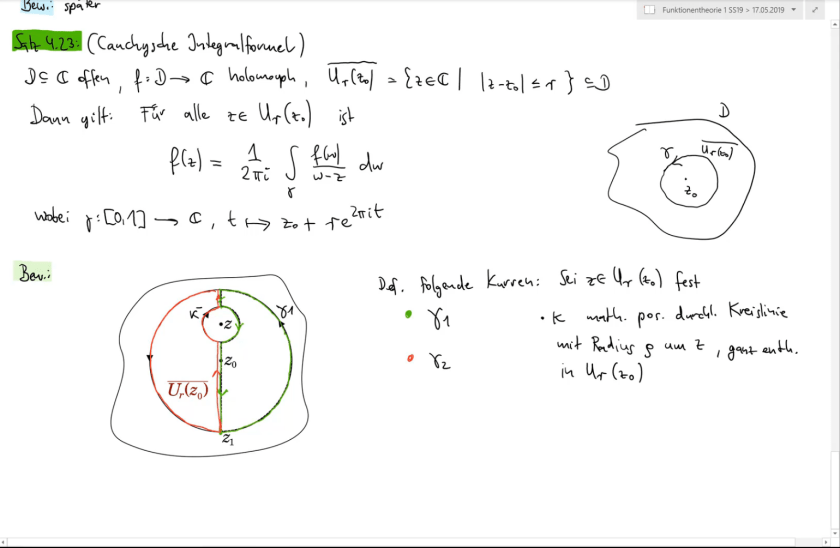 Bew.: später
Funktionentheorie 1 SS19 > 17.05.2019
Satz 4.23: (Cauchysche Integralformel)
D ⊆ ℂ offen, f: D → ℂ holomorph, \overline{U_r(z_0)} = {z ∈ ℂ | |z-z_0| ≤ r} ⊆ D
Dann gilt: Für alle z ∈ U_r(z_0) ist
f(z) = \frac{1}{2πi} ∫_γ \frac{f(w)}{w-z} dw
wobei γ: [0,1] → ℂ, t ↦ z_0 + re^{2πit}
D
γ
\overline{U_r(z_0)}
z_0
Bew.:
κ^-
γ1
z
z_0
\overline{U_r(z_0)}
z_1
Def. folgende Kurven: Sei z ∈ U_r(z_0) fest
• γ_1
• γ_2
• κ math. pos. durchl. Kreislinie
mit Radius ρ um z, ganz enth.
in U_r(z_0)